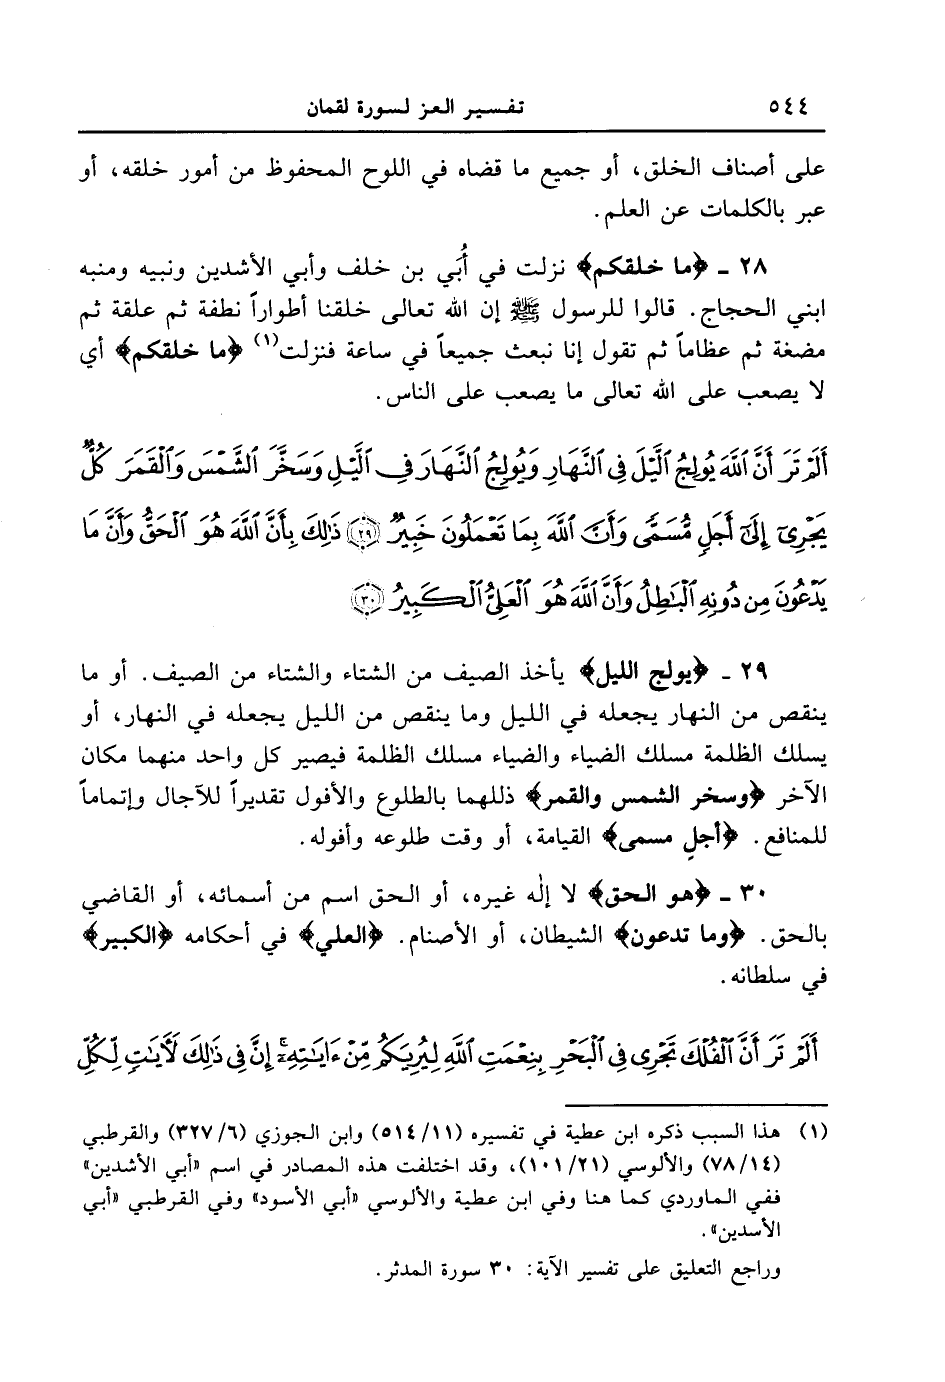 ٥٤٤ تفسير العز لسورة لقمان
على أصناف الخلق، أو جميع ما قضاه في اللوح المحفوظ من أمور خلقه، أو
عبر بالكلمات عن العلم.
٢٨ ـ ﴿ما خلقكم﴾ نزلت في أُبَي بن خلف وأبي الأشدين ونبيه ومنبه
ابني الحجاج. قالوا للرسول ﷺ إن الله تعالى خلقنا أطواراً نطفة ثم علقة ثم
مضغة ثم عظاماً ثم تقول إنا نبعث جميعاً في ساعة فنزلت(١) ﴿ما خلقكم﴾ أي
لا يصعب على الله تعالى ما يصعب على الناس.
أَلَمْ تَرَ أَنَّ ٱللَّهَ يُولِجُ ٱلَّيْلَ فِى ٱلنَّهَارِ وَيُولِجُ ٱلنَّهَارَ فِى ٱلَّيْلِ وَسَخَّرَ ٱلشَّمْسَ وَٱلْقَمَرَ كُلٌّ
يَجْرِىٓ إِلَىٰٓ أَجَلٍ مُّسَمًّى وَأَنَّ ٱللَّهَ بِمَا تَعْمَلُونَ خَبِيرٌ ﴿٢٩﴾ ذَٰلِكَ بِأَنَّ ٱللَّهَ هُوَ ٱلْحَقُّ وَأَنَّ مَا
يَدْعُونَ مِن دُونِهِ ٱلْبَٰطِلُ وَأَنَّ ٱللَّهَ هُوَ ٱلْعَلِىُّ ٱلْكَبِيرُ ﴿٣٠﴾
٢٩ ـ ﴿يولج الليل﴾ يأخذ الصيف من الشتاء والشتاء من الصيف. أو ما
ينقص من النهار يجعله في الليل وما ينقص من الليل يجعله في النهار، أو
يسلك الظلمة مسلك الضياء والضياء مسلك الظلمة فيصير كل واحد منهما مكان
الآخر ﴿وسخر الشمس والقمر﴾ ذللهما بالطلوع والأفول تقديراً للآجال وإتماماً
للمنافع. ﴿أجلٍ مسمى﴾ القيامة، أو وقت طلوعه وأفوله.
٣٠ ـ ﴿هو الحق﴾ لا إلٰه غيره، أو الحق اسم من أسمائه، أو القاضي
بالحق. ﴿وما تدعون﴾ الشيطان، أو الأصنام. ﴿العلي﴾ في أحكامه ﴿الكبير﴾
في سلطانه.
أَلَمْ تَرَ أَنَّ ٱلْفُلْكَ تَجْرِى فِى ٱلْبَحْرِ بِنِعْمَتِ ٱللَّهِ لِيُرِيَكُم مِّنْ ءَايَٰتِهِۦٓ ۚ إِنَّ فِى ذَٰلِكَ لَءَايَٰتٍ لِّكُلِّ
(١) هذا السبب ذكره ابن عطية في تفسيره (٥١٤/١١) وابن الجوزي (٣٢٧/٦) والقرطبي
(٧٨/١٤) والألوسي (١٠١/٢١)، وقد اختلفت هذه المصادر في اسم «أبي الأشدين»
ففي الماوردي كما هنا وفي ابن عطية والألوسي «أبي الأسود» وفي القرطبي «أبي
الأسدين».
وراجع التعليق على تفسير الآية: ٣٠ سورة المدثر.